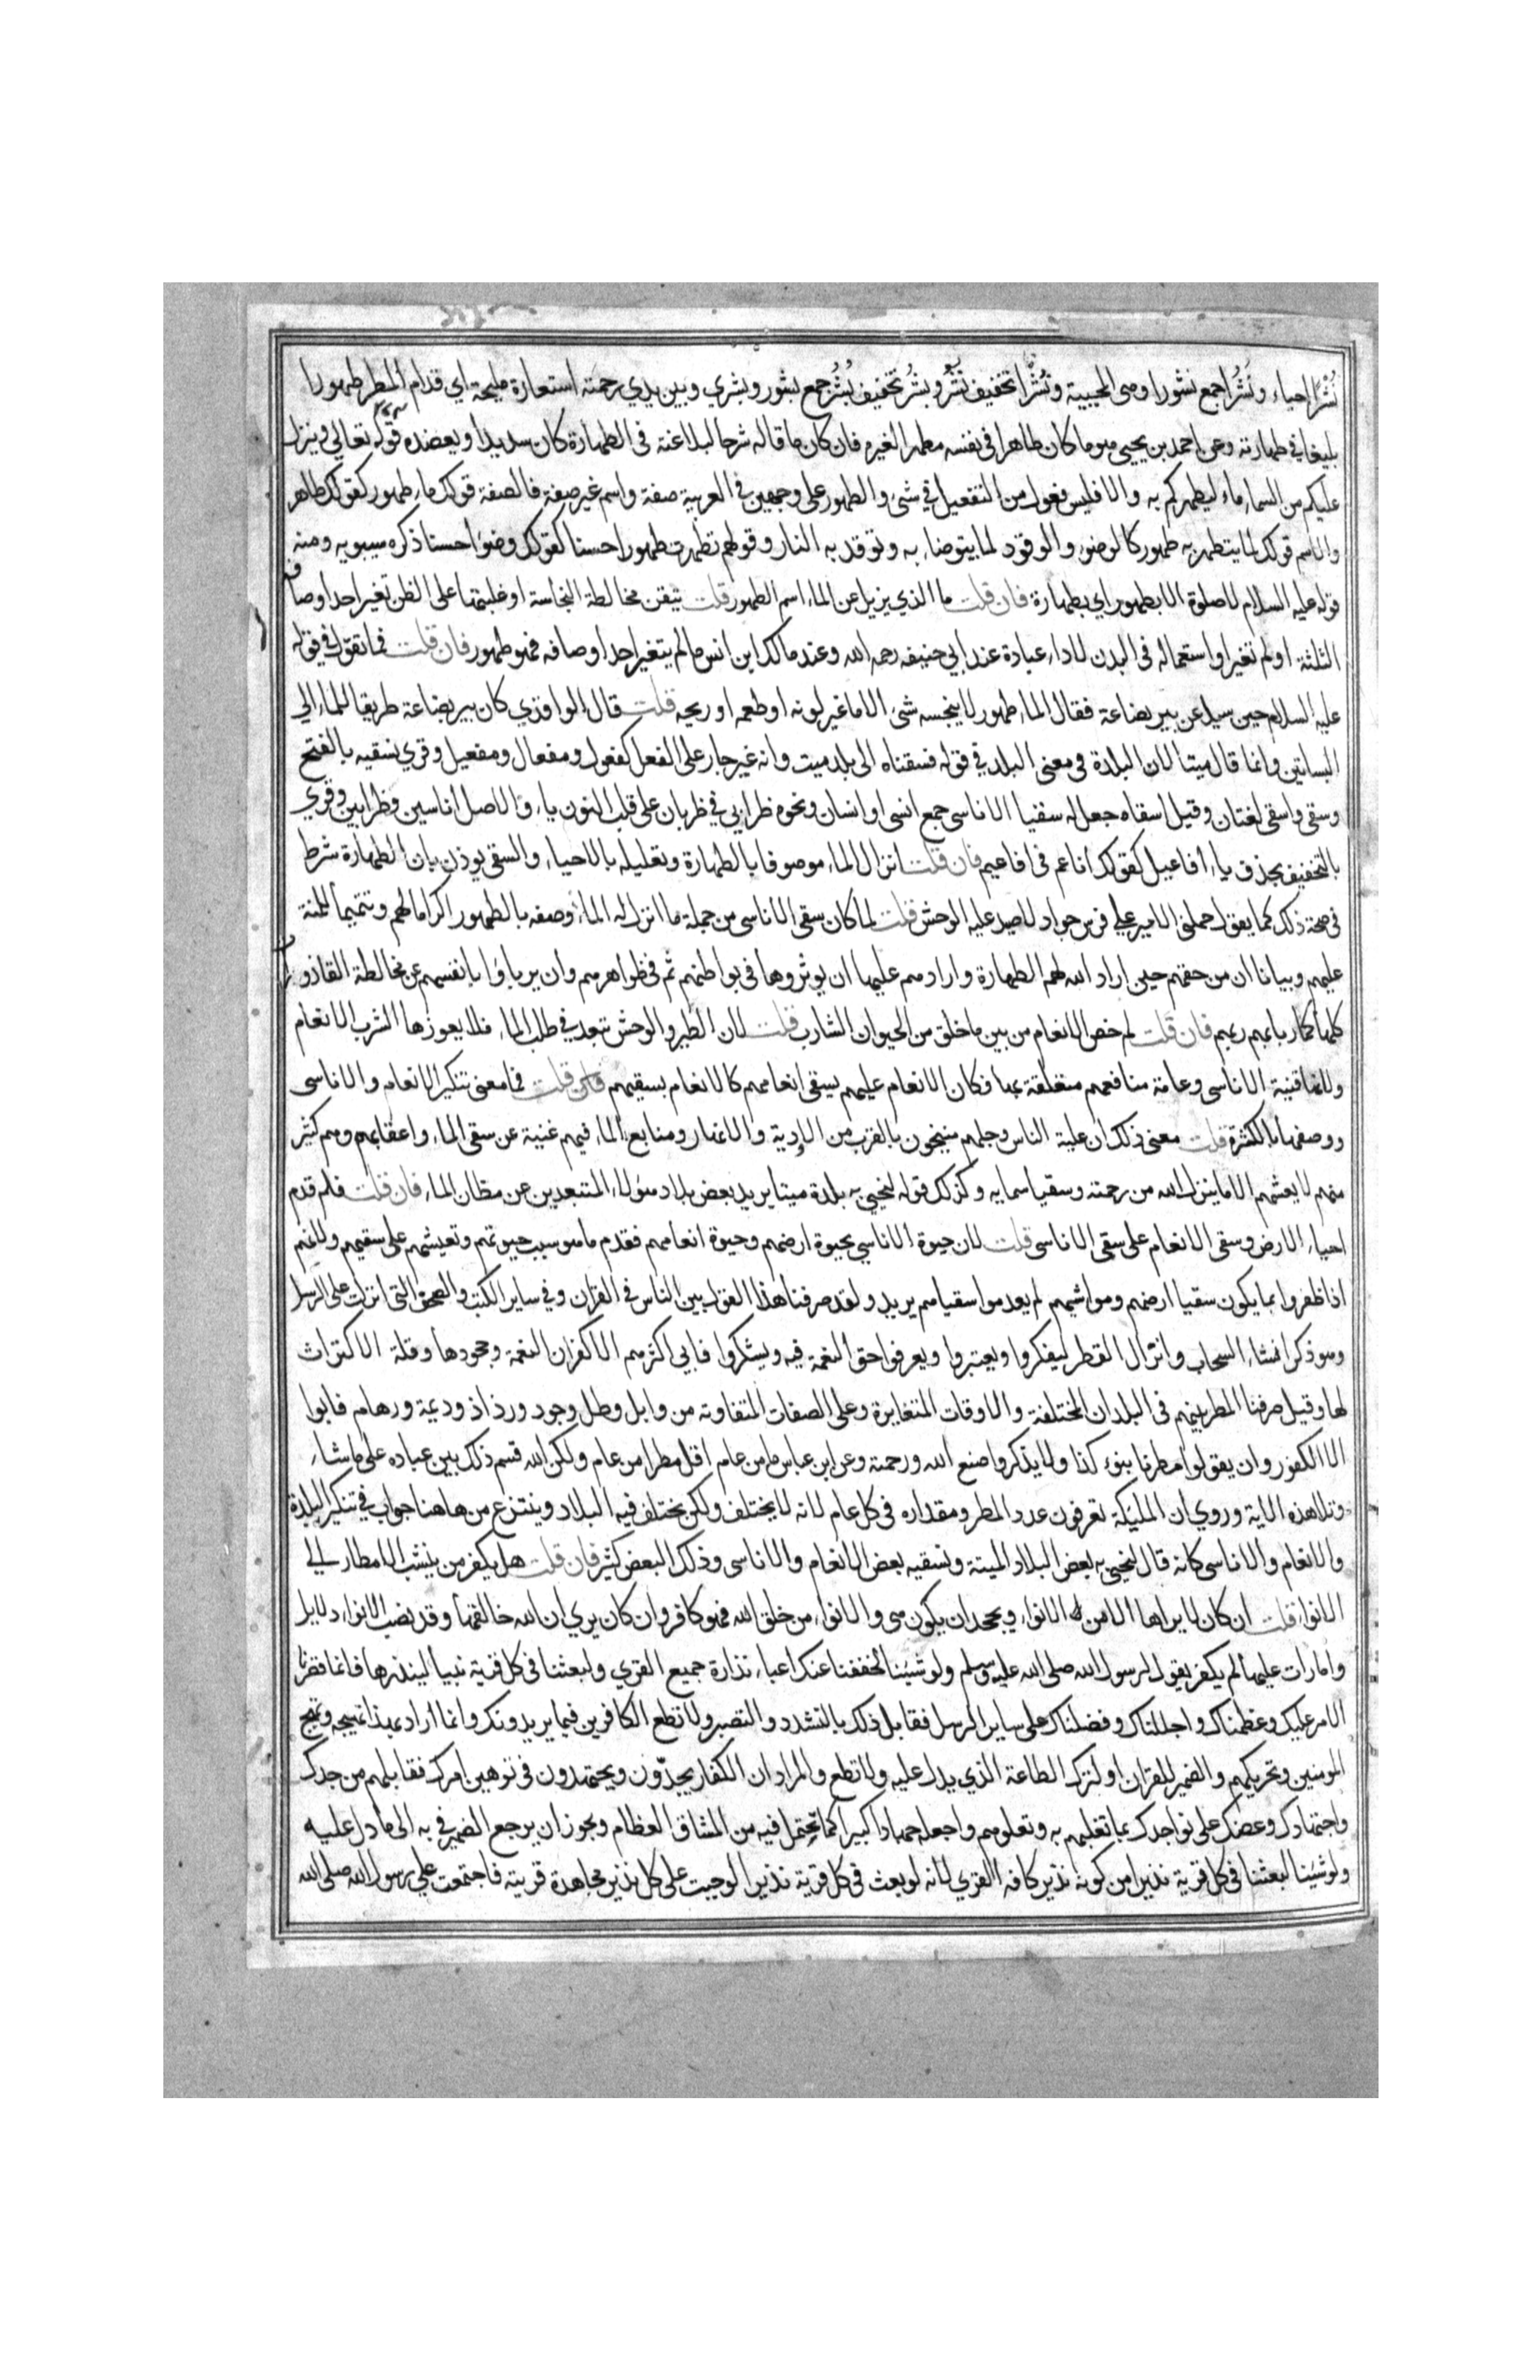 نُشْرًا إحياء ونُشُرًا جمع نشور اوهى المحيية ونُشْرًا تخفيف نُشُر وبُشْر تخفيف بُشُر جمع بشور وبشري وبين يدي رحمته استعارة مليحة اي قدام المطر طهورا
بليغا في طهارته وعن احمد بن يحيى هو ما كان طاهرا في نفسه مطهرا لغيره فان كان ما قاله شرحا لبلاغته في الطهارة كان سديدا ويعضده قوله تعالي وينزل
عليكم من السماء ماء ليطهركم به والا فليس فعول من التفعيل في شئ والطهور على وجهين في العربية صفة واسم غير صفة فالصفة قولك ماء طهور كقولك طاهر
والاسم قولك لما يتطهر به طهور كالوضوء والوقود لما يتوضاء به وتوقد به النار وقولهم تطهرت طهورا حسنا كقولك وضوا حسنا ذكره سيبويه ومنه
قوله عليه السلام لا صلوة الا بطهور اي بطهارة فان قلت ما الذي يزيل عن الماء اسم الطهور قلت تيقن مخالطة النجاسة او غلبتها على الظن تغير احد اوصافه
الثلثة او لم تغير او استعماله في البدن لاداء عبادة عند ابي حنيفه رحمه الله وعند مالك ابن انس ما لم يتغير احد اوصافه فهو طهور فان قلت فما تقول في قوله
عليه السلام حين سيل عن بير بضاعة فقال الماء طهور لا ينجسه شئ الا ما غير لونه او طعمه او ريحه قلت قال الواقذي كان بير بضاعة طريقا للماء الي
البساتين وانما قال ميتا لان البلدة في معنى البلد في قوله فسقناه الى بلد ميت وانه غير جار على الفعل كفعول ومفعال ومفعيل وقري نسقيه بالفتح
وسقى واسقى لغتان وقيل اسقاه جعل له سقيا الاناسى جمع انسى او انسان ونحوه ظرابي في ظربان على قلب النون ياء والاصل اناسين وظرابين وقري
بالتخفيف بحذف ياء افاعيل كقولك اناعم في اناعيم فان قلت انزال الماء موصوفا بالطهارة وتعليله بالاحياء والسقى يوذن بان الطهارة شرط
في صحة ذلك كما يقول حملنى الامير على فرس جواد لاصيد عليه الوحش قلت لما كان سقى الاناسى من جملة ما انزل له الماء وصفه بالطهور اكراما لهم وتتميما للمنة
عليهم وبيانا ان من حقهم حين اراد الله لهم الطهارة وارادهم عليها ان يوثروها في بواطنهم ثم في ظواهرهم وان يرباوا بانفسهم عن مخالطة القاذورات
كلها كما ربا بهم ربهم فان قلت لم خص الانعام من بين ما خلق من الحيوان الشارب قلت لان الطير والوحش تبعد في طلب الماء فلا يعوزها الشرب الانعام
ولانها قنية الاناسى وعامة منافعهم متعلقة بها فكان الانعام عليهم بسقى انعامهم كالانعام بسقيهم فان قلت فما معنى تنكير الانعام والاناسى
ووصفها بالكثرة قلت معنى ذلك ان علية الناس وجلهم منيخون بالقرب من الاودية والانهار ومنابع الماء فيهم غنية عن سقى الماء واعقابهم وهم كثير
منهم لا يعشهم الا ما ينزل الله من رحمته وسقيا سمايه وكذلك قوله لنحيي به بلدة ميتا يريد بعض بلاد هولاء المتبعدين عن مظان الماء فان قلت فلم قدم
احياء الارض وسقى الانعام على سقى الاناسى قلت لان حيوة الاناسي بحيوة ارضهم وحيوة انعامهم فقدم ما هو سبب حيوتهم وتعيشهم على سقيهم ولانهم
اذا ظفروا بما يكون سقيا ارضهم ومواشيهم لم يعدموا سقياهم يريد ولقد صرفنا هذا القول بين الناس في القران وفي ساير الكتب والصحف التى انزلت على الرسل
وهو ذكر انشاء السحاب وانزال القطر ليفكروا ويعتبروا ويعرفوا حق النعمة فيه ويشكروا فابي اكثرهم الا كفران النعمة وجحودها وقلة الاكتراث
لها وقيل صرفنا المطر بينهم في البلدان المختلفة والاوقات المتغايرة وعلى الصفات المتفاوته من وابل وطل وجود ورذاذ وديمة ورهام فابوا
الا الكفور وان يقولوا مطرنا بنوء كذا ولا يذكروا صنع الله ورحمته وعن ابن عباس ما من عام اقل مطرا من عام ولكن الله قسم ذلك بين عباده على ما شاء
وتلا هذه الاية وروي ان المليكة تعرفون عدد المطر ومقداره في كل عام لانه لا يختلف ولكن يختلف فيه البلاد وينتزع من هاهنا جواب في تنكير البلدة
والانعام والاناسى كانه قال لنحيي به بعض البلاد الميتة ونسقيه بعض الانعام والاناسى وذلك البعض كثير فان قلت هل يكفر من ينسب الامطار الي
الانواء قلت ان كان لا يراها الا من الانواء ويجحد ان يكون هى والانواء من خلق الله فهو كافر وان كان يري ان الله خالقها وقد نصب الانواء دلايل
وامارات عليها لم يكفر يقول لرسول الله صلى الله عليه وسلم ولو شئنا لخففنا عنك اعباء نذارة جميع القري ولبعثنا في كل قرية نبيا لينذرها فانما قصرنا
الامر عليك وعظمناك واجللناك وفضلناك على ساير الرسل فقابل ذلك بالتشدد والتصبر ولا تطع الكافرين فيما يريدونك وانما اراد بهذا تهييجه وتهيج
المومنين وتحريكهم والضمير للقران او لترك الطاعة الذي يدل عليه ولا تطع والمراد ان الكفار يجدّون ويجتهدون في توهين امرك فقابلهم من جدك
واجتهادك وعضك على نواجدك بما تغلبهم به وتعلوهم واجعله جهادا كبيرا كما تحتمل فيه من المشاق العظام ويجوز ان يرجع الضمير في به الى ما دل عليه
ولو شئنا لبعثنا في كل قرية نذيرا من كونه نذير كافه القري لانه لو بعث في كل قرية نذيرا لوجبت على كل نذير مجاهدة قريته فاجتمعت علي رسول الله صلى الله